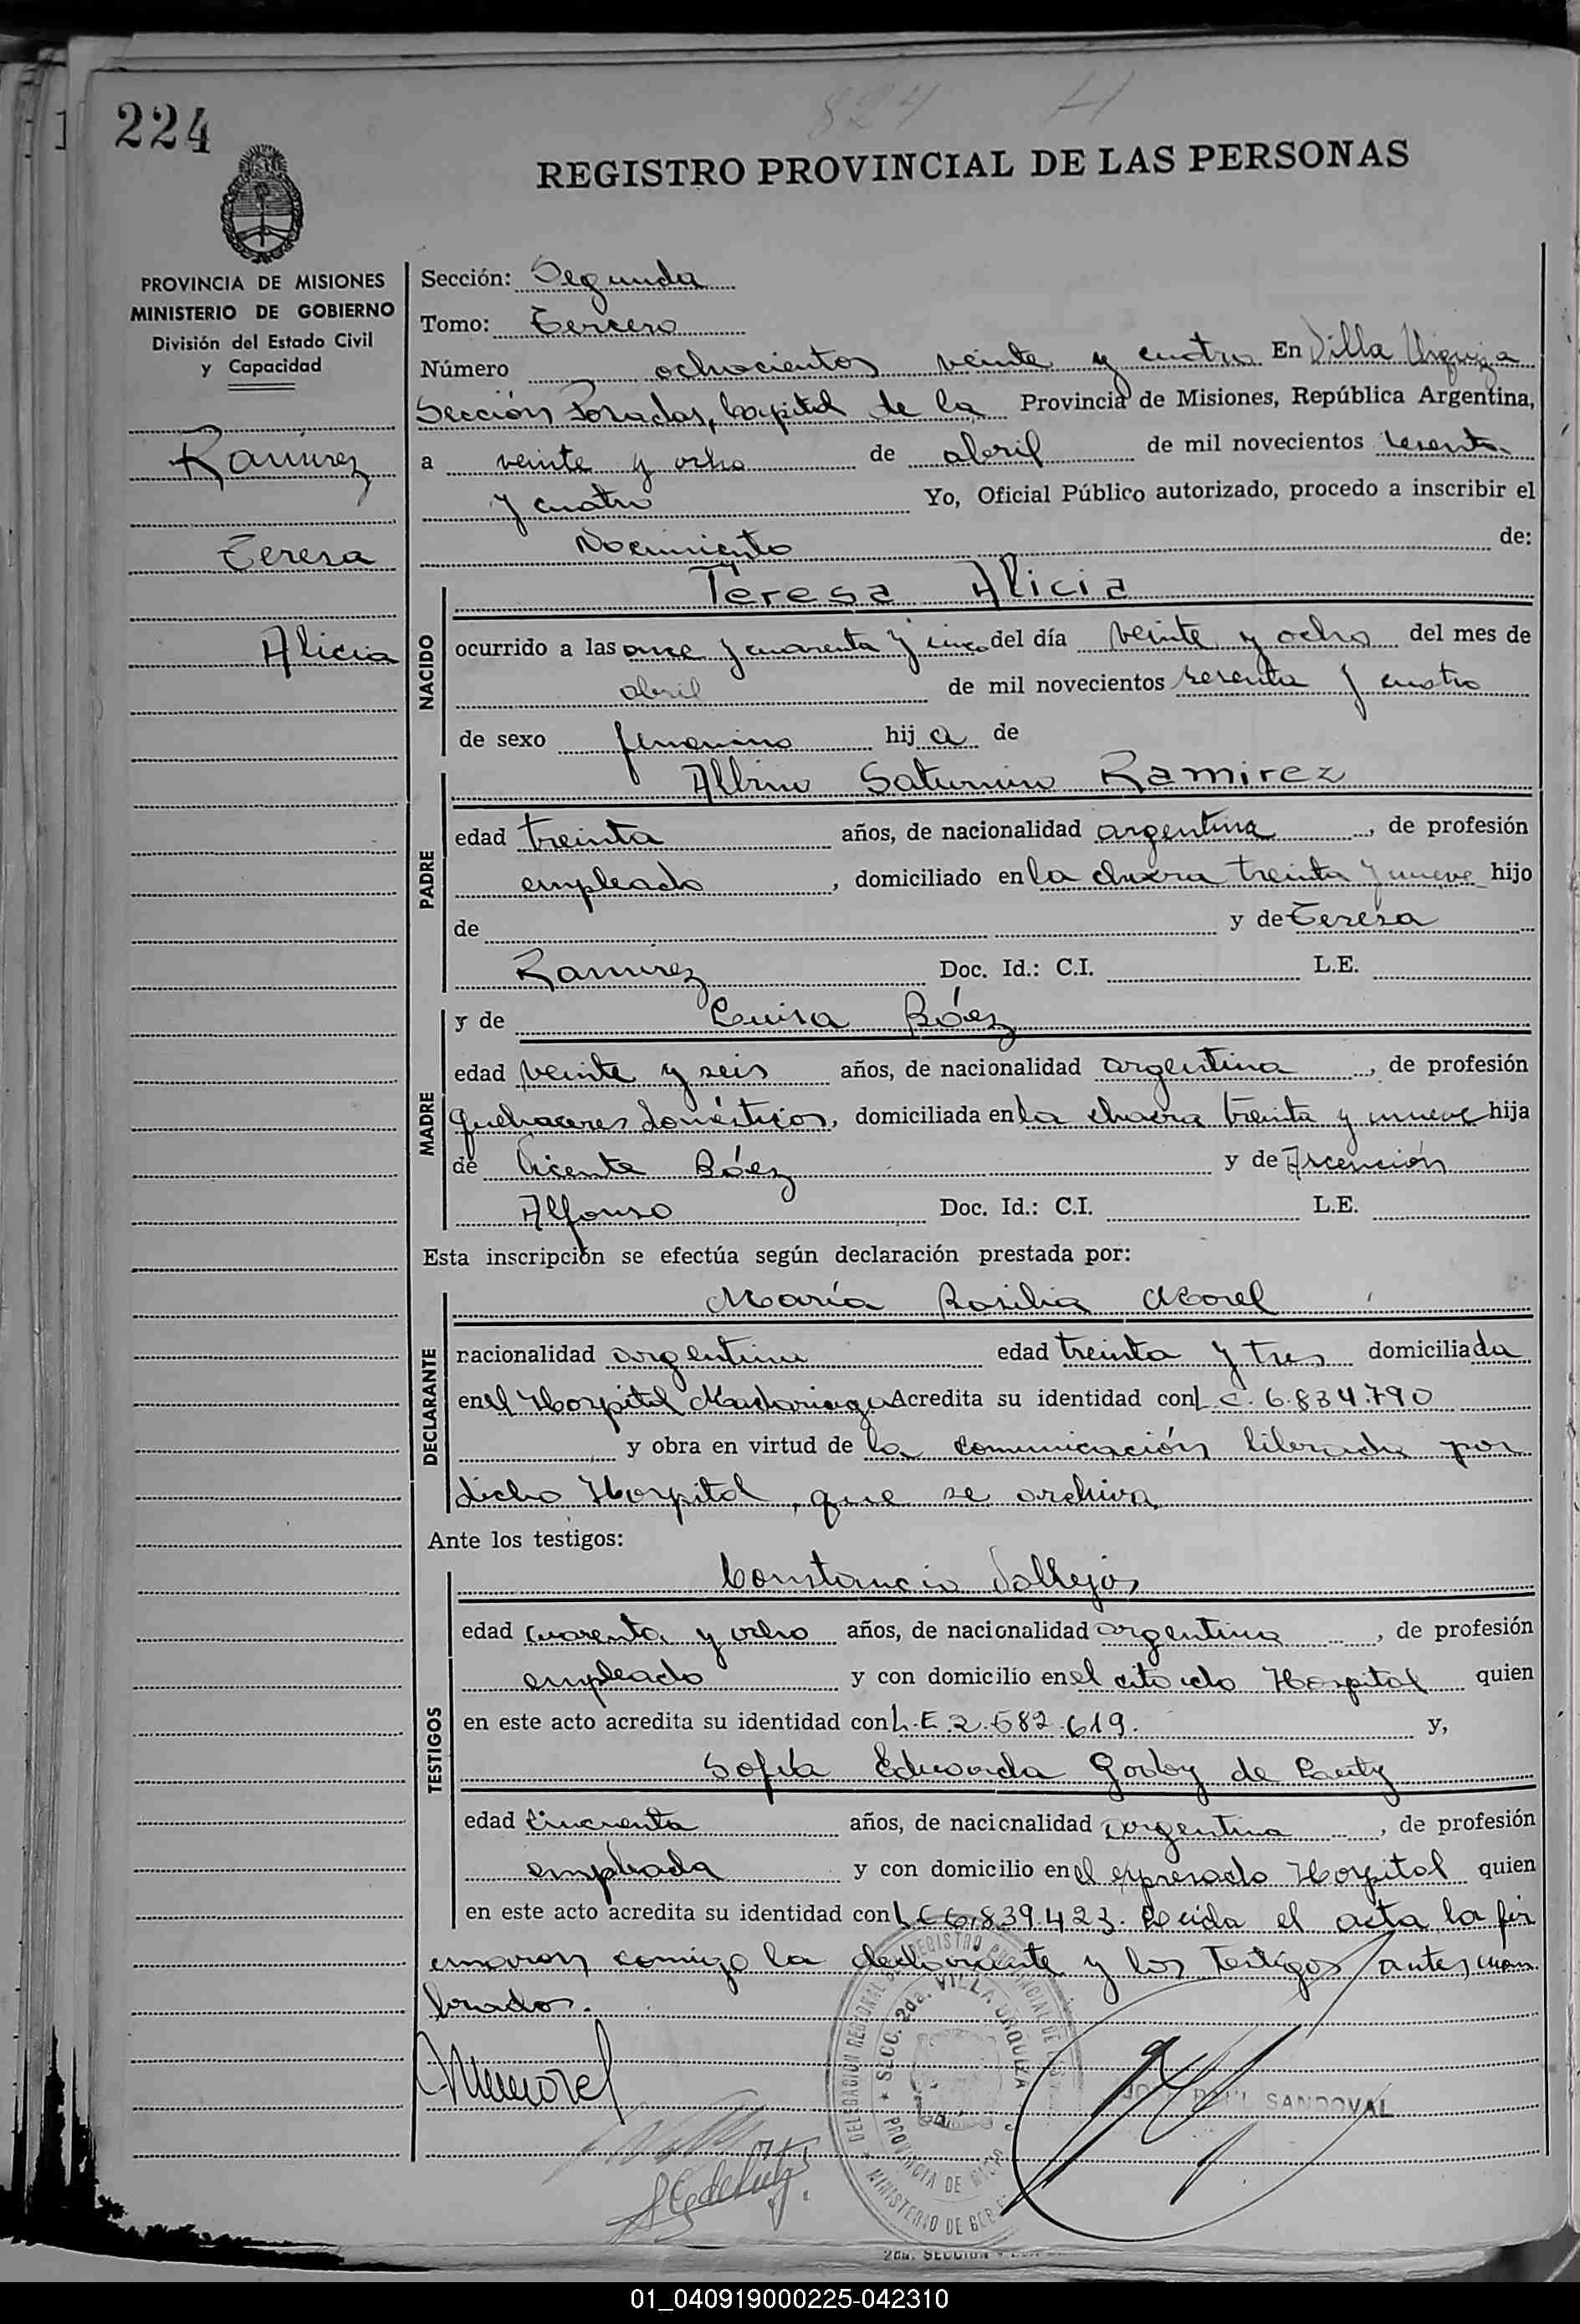 224
824 H
REGISTRO PROVINCIAL DE LAS PERSONAS
PROVINCIA DE MISIONES
MINISTERIO DE GOBIERNO
División del Estado Civil
y Capacidad
Ramirez
Teresa
Alicia
Sección: Segunda
Tomo: Tercero
Número ochocientos veinte y cuatro En Villa Urquiza
Sección Posadas, Capital de la Provincia de Misiones, República Argentina,
a veinte y ocho de abril de mil novecientos sesenta
y cuatro Yo, Oficial Público autorizado, procedo a inscribir el
Nacimiento de:
NACIDO
Teresa Alicia
ocurrido a las once y cuarenta y cinco del día veinte y ocho del mes de
abril de mil novecientos sesenta y cuatro
de sexo femenino hija de
PADRE
Albino Saturnino Ramirez
edad treinta años, de nacionalidad argentina, de profesión
empleado, domiciliado en la chacra treinta y nueve hijo
de y de Teresa
Ramirez Doc. Id.: C.I. L.E.
MADRE
y de Luisa Báez
edad veinte y seis años, de nacionalidad argentina, de profesión
quehaceres domésticos, domiciliada en la chacra treinta y nueve hija
de Vicente Báez y de Ascención
Alfonso Doc. Id.: C.I. L.E.
Esta inscripción se efectúa según declaración prestada por:
DECLARANTE
María Morel
nacionalidad argentina edad treinta y tres domiciliada
en el Hospital Madariaga Acredita su identidad con L C. 6.834.790
y obra en virtud de la comunicación librada por
dicho Hospital, que se archiva
Ante los testigos:
TESTIGOS
Constancio Vallejos
edad cuarenta y ocho años, de nacionalidad argentina, de profesión
empleado y con domicilio en el citado Hospital quien
en este acto acredita su identidad con L.E 2.582.619. y,
Sofía Eduarda Godoy de
edad cincuenta años, de nacionalidad argentina, de profesión
empleada y con domicilio en el expresado Hospital quien
en este acto acredita su identidad con L C 6.839.423. Leida el acta la fir
maron comigo la declarante y los testigos antes nom
brados.
DELEGACION REGIONAL DEL REGISTRO PROVINCIAL DE LAS
SECC. 2da. VILLA URQUIZA
PROVINCIA DE
MINISTERIO DE
SANDOVAL
2da. SECCION
01_040919000225-042310